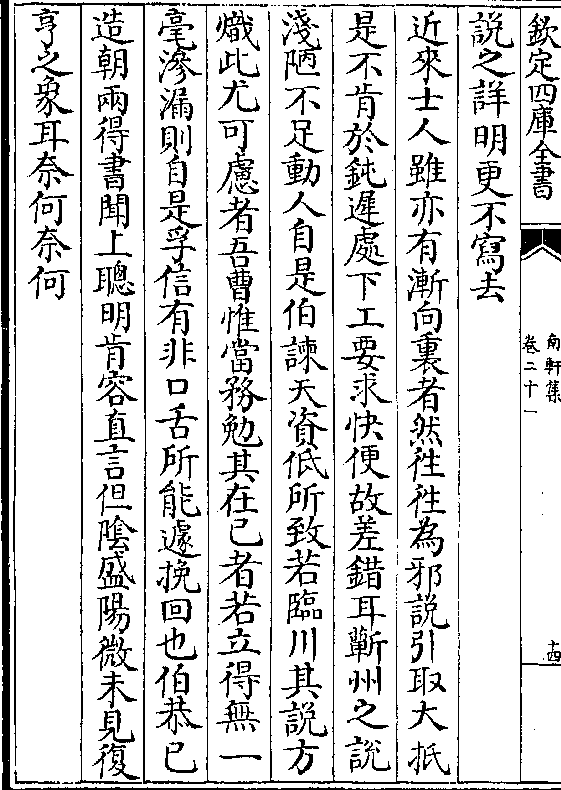 欽定四庫全書
南軒集
卷二十一
十四
說之詳明更不寫去
近來士人雖亦有漸向裏者然徃徃為邪說引取大抵
是不肯於鈍遲處下工要求快便故差錯耳蘄州之說
淺陋不足動人自是伯諫天資低所致若臨川其說方
熾此尤可慮者吾曹惟當務勉其在已者若立得無一
毫滲漏則自是孚信有非口舌所能遽挽回也伯恭已
造朝兩得書聞上聰明肯容直言但陰盛陽微未見復
亨之象耳奈何奈何